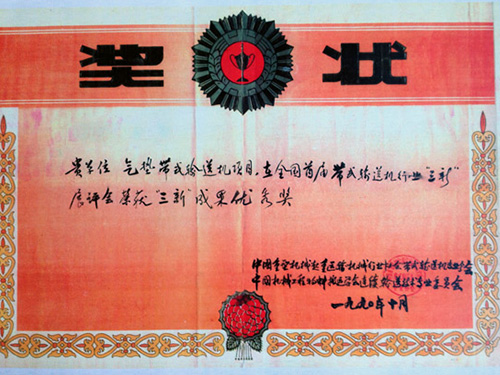 奖状
贵单位 气垫带式输送机项目，在全国首届带式输送机行业"三新"
展评会荣获"三新"成果优秀奖
中国重型机械起重运输机械行业协会带式输送机专业会
中国机械工程物料搬运学会连续输送技术专业委员会
一九九〇年十月